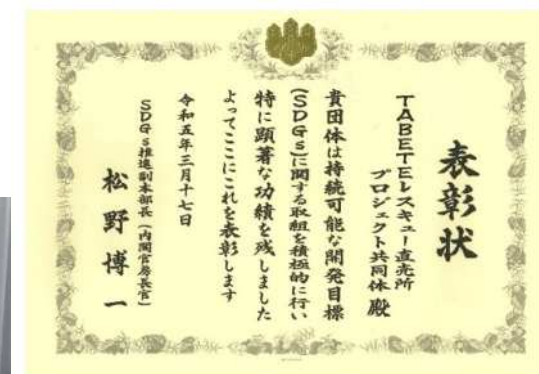 表彰状
TABETEレスキュー直売所
プロジェクト共同体 殿
貴団体は持続可能な開発目標
(SDGs)に関する取組を積極的に行い
特に顕著な功績を残しました
よってここにこれを表彰します
令和五年三月十七日
SDGs推進副本部長(内閣官房長官)
松野博一